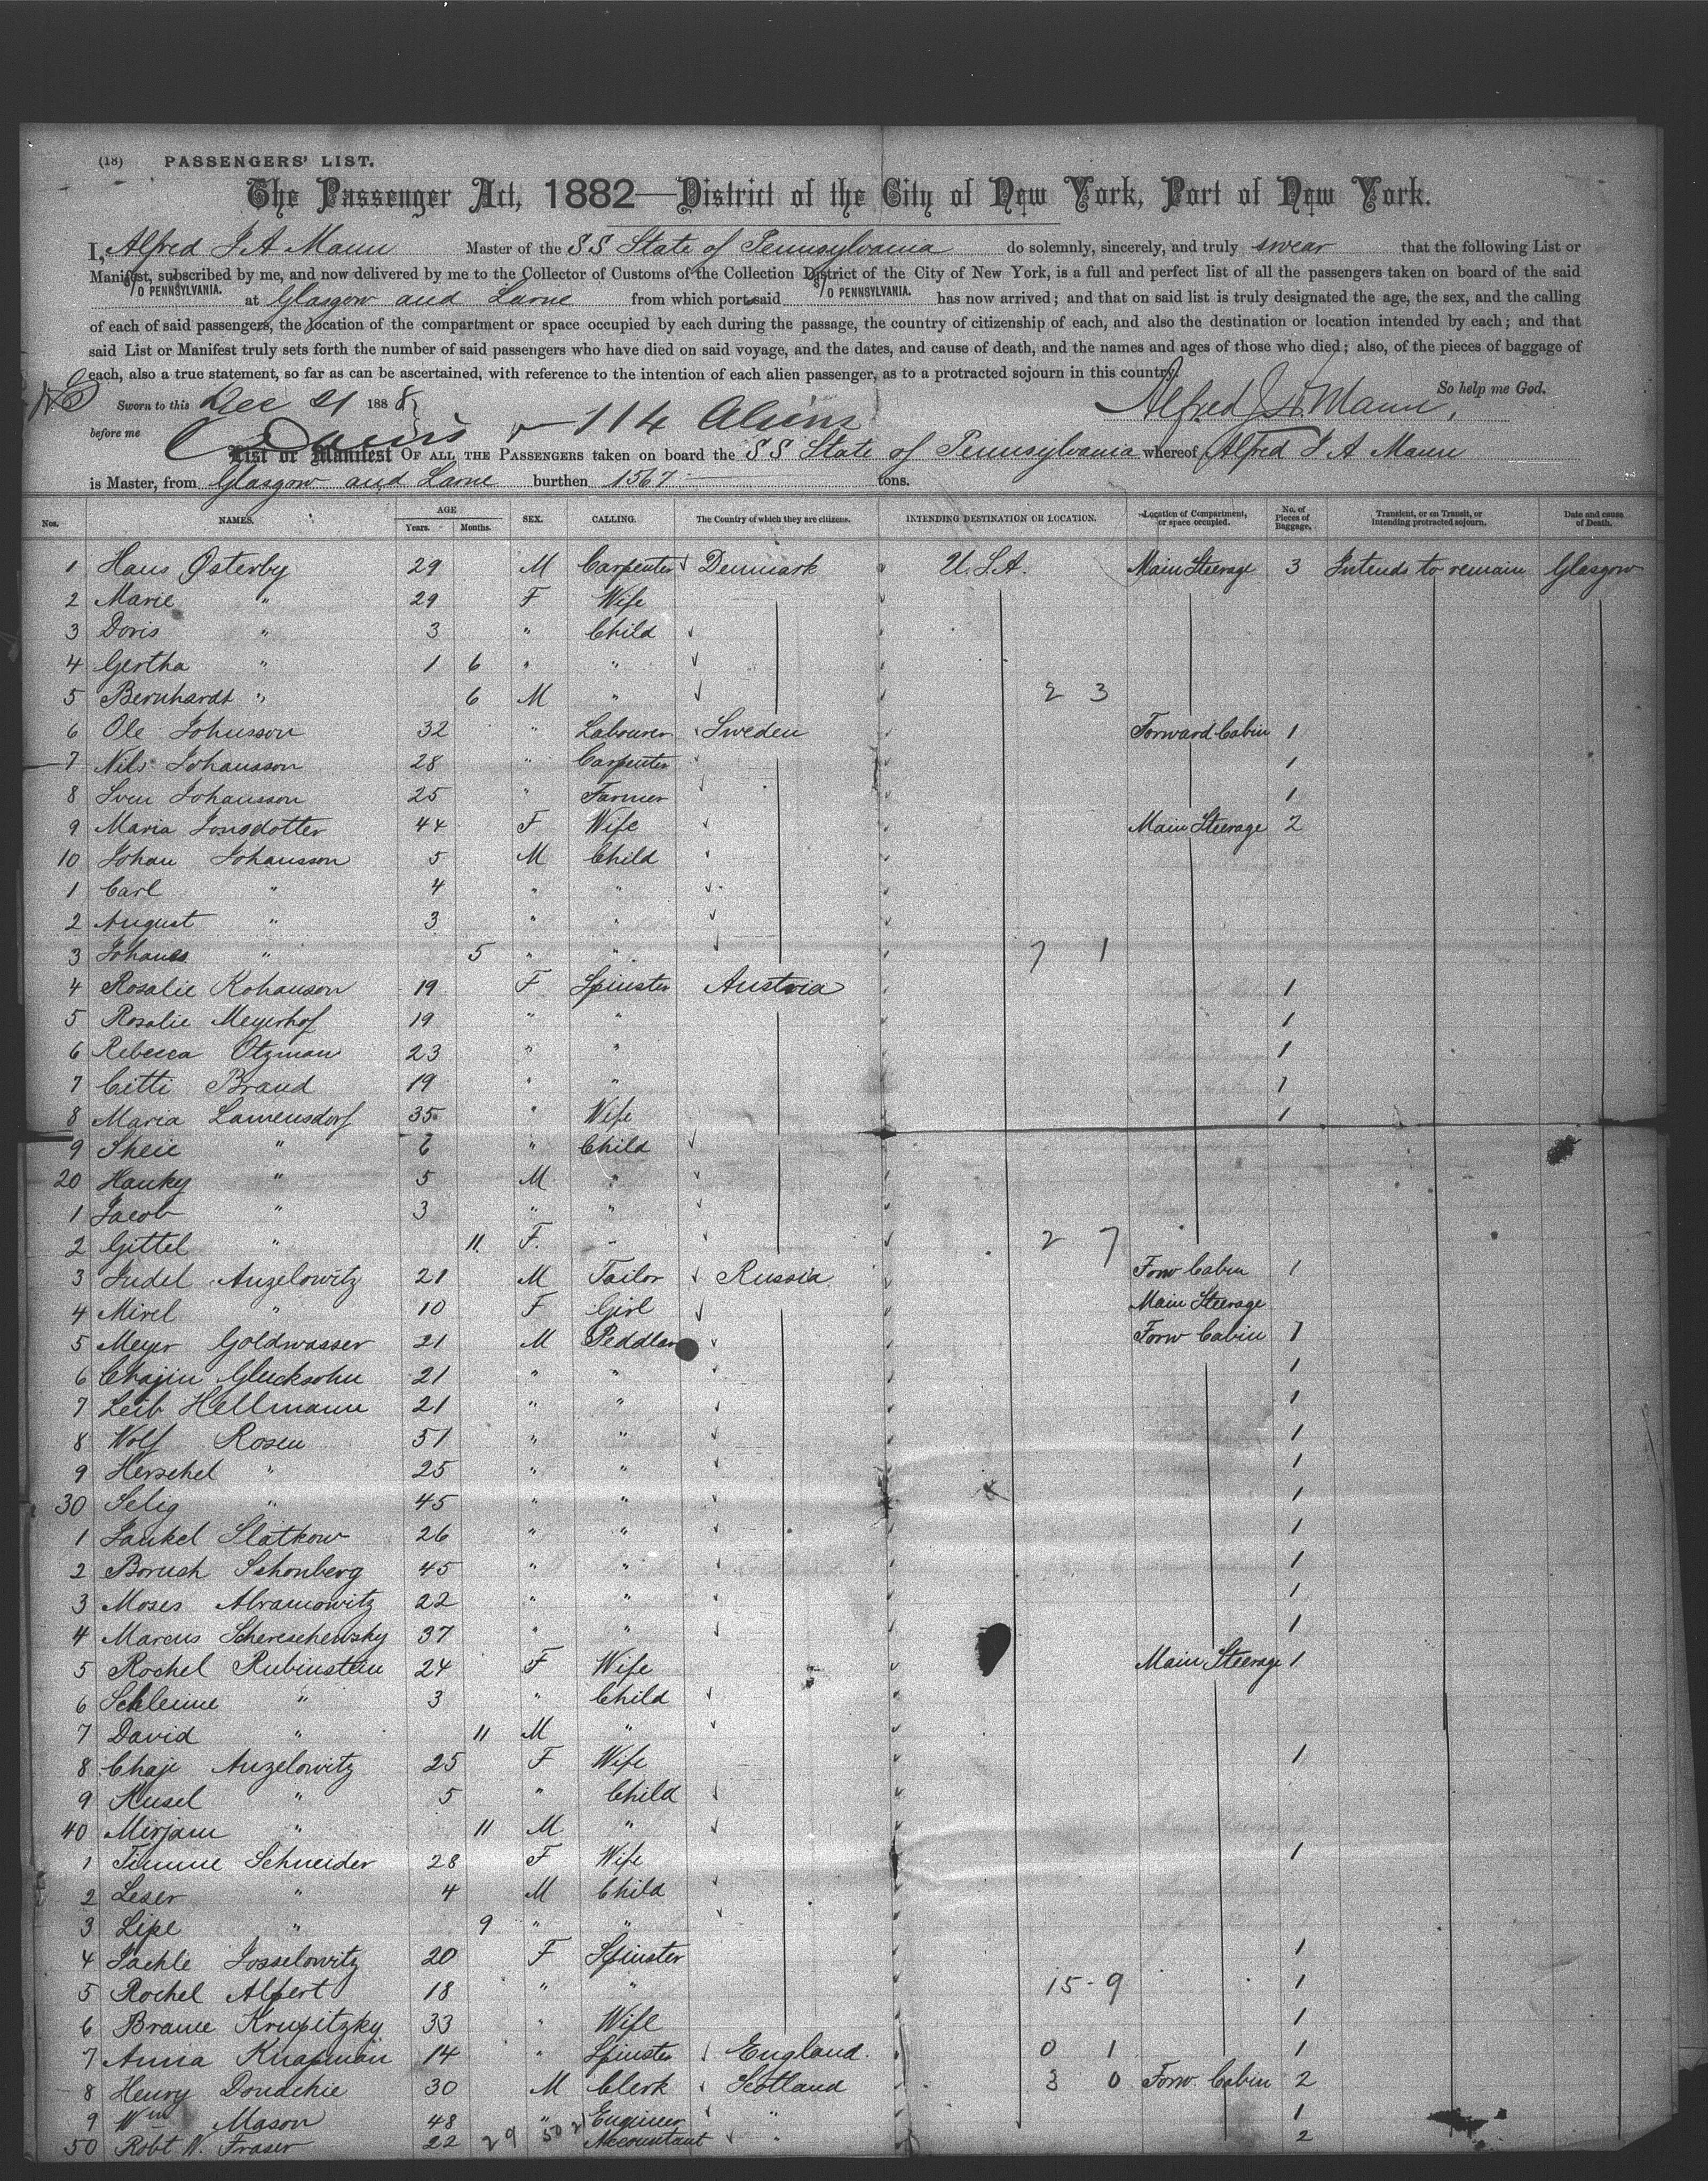 (18) PASSENGERS' LIST.
The Passenger Act, 1882—District of the City of New York, Port of New York.
I, Alfred J A Mann Master of the SS State of Pennsylvania do solemnly, sincerely, and truly swear that the following List or
Manifest, subscribed by me, and now delivered by me to the Collector of Customs of the Collection District of the City of New York, is a full and perfect list of all the passengers taken on board of the said
S/O PENNSYLVANIA. at Glasgow and Larne from which port said S/O PENNSYLVANIA. has now arrived; and that on said list is truly designated the age, the sex, and the calling
of each of said passengers, the location of the compartment or space occupied by each during the passage, the country of citizenship of each, and also the destination or location intended by each; and that
said List or Manifest truly sets forth the number of said passengers who have died on said voyage, and the dates, and cause of death, and the names and ages of those who died; also, of the pieces of baggage of
each, also a true statement, so far as can be ascertained, with reference to the intention of each alien passenger, as to a protracted sojourn in this country.
So help me God.
Sworn to this Dec 21 1888 Alfred J A Mann.
before me 114 Aliens
List or Manifest OF ALL THE PASSENGERS taken on board the SS State of Pennsylvania whereof Alfred J A Mann
is Master, from Glasgow and Larne burthen 1567 tons.
Nos. NAMES. AGE Years. Months. SEX. CALLING. The Country of which they are citizens. INTENDING DESTINATION OR LOCATION. Location of Compartment, or space occupied. No. of Pieces of Baggage. Transient, or on Transit, or intending protracted sojourn. Date and cause of Death.
1 Hans Østerby 29 M Carpenter Denmark U.S.A. Main Steerage 3 Intends to remain Glasgow
2 Marie " 29 F Wife
3 Doris " 3 " Child
4 Gertha " 1 6 " "
5 Bernhardt " 6 M " 2 3
6 Ole Johnsson 32 " Labourer Sweden Forward Cabin 1
7 Nils Johansson 28 " Carpenter 1
8 Sven Johansson 25 " Farmer 1
9 Maria Jonsdotter 44 F Wife Main Steerage 2
10 Johan Johansson 5 M Child
1 Carl " 4 " "
2 August " 3 " "
3 Johanes " 5 " " 7 1
4 Rosalie Kohanson 19 F Spinster Austria 1
5 Rosalie Meyerhof 19 " " 1
6 Rebecca Otzman 23 " " 1
7 Citti Brand 19 " " 1
8 Maria Lamensdorf 35 " Wife 1
9 Sheie " 6 " Child
20 Hanky " 5 M "
1 Jacob " 3 " "
2 Gittel " 11 F. " 2 7
3 Judel Anzelowitz 21 M Tailor Russia Forw Cabin 1
4 Mirel " 10 F Girl Main Steerage
5 Meyer Goldwasser 21 M Peddlar Forw Cabin 1
6 Chajin Glucksohn 21 " " 1
7 Leib Hellmann 21 " " 1
8 Wolf Rosen 51 " " 1
9 Herschel " 25 " " 1
30 Selig " 45 " " 1
1 Jankel Slatkow 26 " " 1
2 Boruch Schonberg 45 " " 1
3 Moses Abramowitz 22 " " 1
4 Marcus Schereschewsky 37 " " 1
5 Rochel Rubinstein 24 F Wife Main Steerage 1
6 Schleime " 3 " Child
7 David " 11 M "
8 Chaje Anzelowitz 25 F Wife 1
9 Kusel " 5 " Child
40 Mirjam " 11 M "
1 Schneider 28 F Wife 1
2 Leser " 4 M Child
3 Lipe " 9 " "
4 Josselowitz 20 F Spinster 1
5 Rochel Alpert 18 " " 15-9 1
6 Braine Krupitzky 33 " Wife 1
7 Anna Knapman 14 " Spinster England. 0 1 1
8 Henry Doudchie 30 M Clerk Scotland 3 0 Forw. Cabin 2
9 Wm Mason 48 " Engineer " 1
50 Robt W. Fraser 22 29 50 21 Accountant " 2